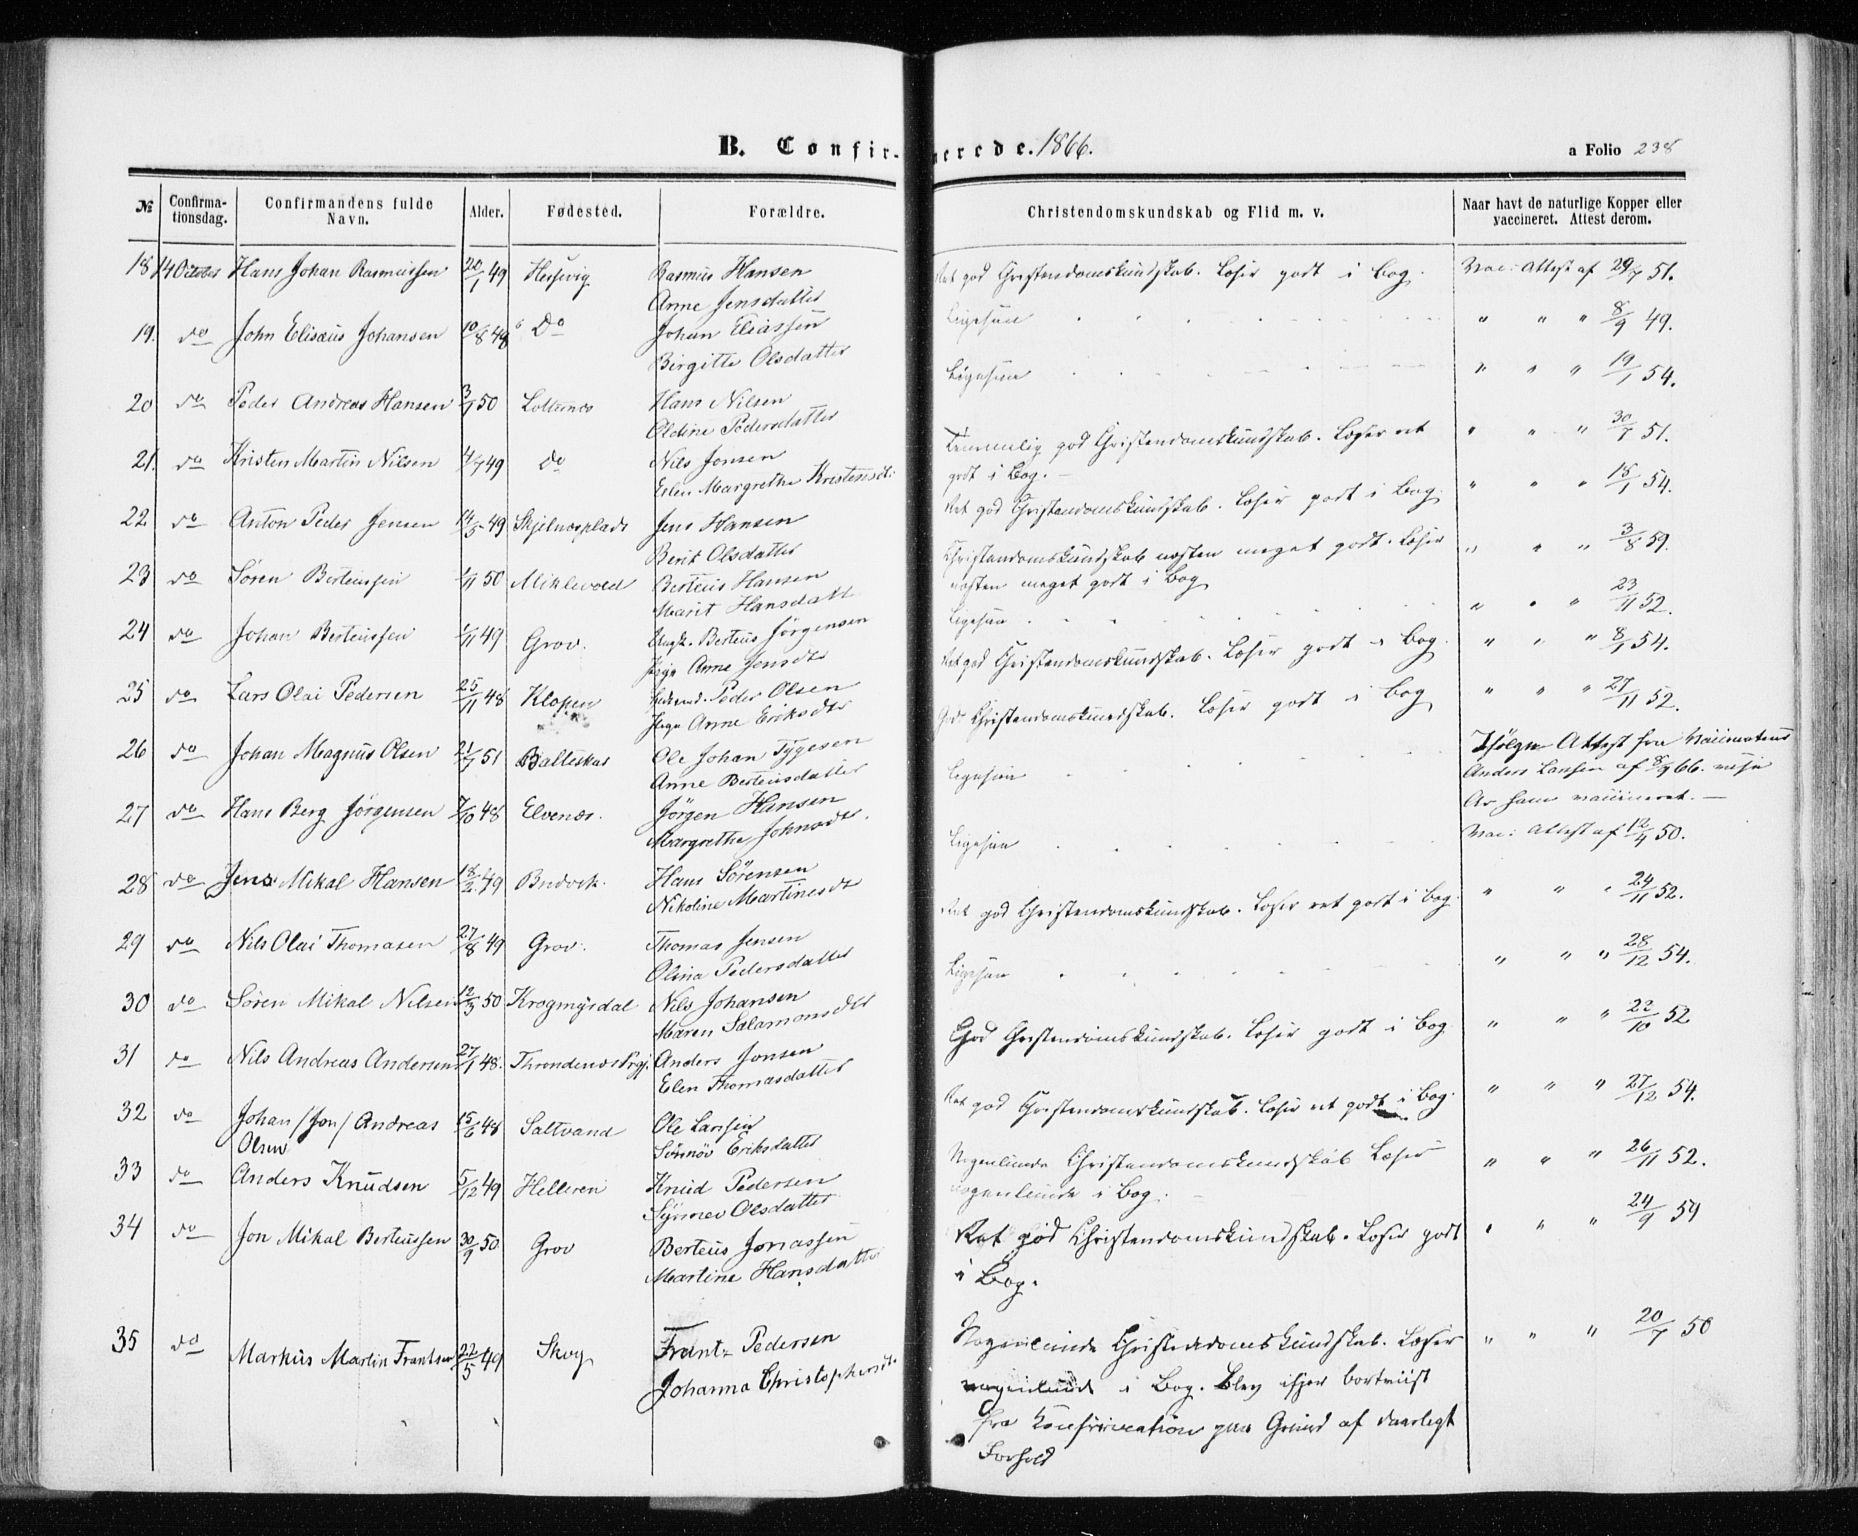 B. Confirmerede. 1866.
a Folio 238
№ Confirmationsdag. Confirmandens fulde Navn. Alder. Fødested. Forældre. Christendomskundskab og Flid m. v. Naar havt de naturlige Kopper eller vaccineret. Attest derom.
18 14 October Hans Johan Rasmussen 20/1 49 Rasmus Hansen Anne Jensdatter Ret god Christendomskundskab. Læser godt i Bog. Vac: Attest af 29/7 51.
19. do John Elisæus Johansen 10/8 48 Do Johan Eliassen Birgitte Olsdatter Ligesaa " " " 8/9 49.
20 do Peder Andreas Hansen 3/1 50 Hans Nilsen Oldine Pedersdatter Ligesaa " " " 19/1 54.
21. do Kristen Martin Nilsen 4/7 49 Do Nils Jonsen Elen Margrethe Kristensdt: Temmelig god Christendomskundskab. Læser ret godt i Bog. " " " 30/7 51.
22 do Anton Peder Jensen 14/5 49 Skjelnesplads Jens Hansen Berit Olsdatter Ret god Christendomskundskab. Læser godt i Bog. " " " 18/1 54.
23 do Søren Berteussen 1/11 50 Miklevold Berteus Hansen Marit Hansdatt Christendomskundskab næsten meget godt. Læser næsten meget godt i Bog " " " 3/8 59.
24 do Johan Berteussen 1/11 49 Grov. Berteus Jørgensen Anne Jensdtr Ligesaa " " " 23/11 52.
25 do Lars Olai Pedersen 25/11 48 Kloper Peder Olsen Anne Eriksdtr Ret god Christendomskundskab. Læser godt i Bog. " " " 8/1 54.
26 do Johan Magnus Olsen 21/7 51 Balteskar Ole Johan Tygesen Anne Berteusdatter God Christendomskundskab. Læser godt i Bog " " " 27/11 52.
27 do Hans Berg Jørgensen 7/10 48 Elvenes. Jørgen Hansen Margrethe Johnsdtr. Ligesaa Ifølge Attest fra Anders Larsen af 8/9 66. han vaccineret.
28 do Jens Mikal Hansen 18/2 49 Budvik. Hans Sørensen Nikoline Martinesdt Ligesaa Vac: Attest af 12/4 50.
29 do Nils Olai Thomasen 27/8 49 Grov. Thomas Jensen Olina Pedersdatter Ret god Christendomskundskab. Læser ret godt i Bog. " " " 24/11 52.
30 do Søren Mikal Nilsen 12/3 50 Krogmyrdal Nils Johansen Maren Salamonsdtr Ligesaa " " " 28/12 54.
31 do Nils Andreas Andersen 27/1 48. Throndenes Prgj. Anders Jonsen Elen Thomasdatter God Christendomskundskab. Læser godt i Bog. " " " 22/10 52
32 do Johan /Jon/ Andreas Olsen 15/6 48 Saltvand Ole Larsen Sønnøv Eriksdatter Ret god Christendomskundskab. Læser ret godt i Bog. " " " 27/12 54.
33 do Anders Knudsen 5/12 49 Helleren Knud Pedersen Synnev Olsdatter Nogenlunde Christendomskundskab Læser nogenlunde i Bog. " " " 26/11 52.
34 do Jon Mikal Berteussen 30/9 50 Grov Berteus Jonassen Martine Hansdatter Ret god Christendomskundskab. Læser godt i Bog. " " " 24/9 54
35 do Markus Martin Frantsen 22/5 49 Skog Frants Pedersen Johanna Christophersdtr Nogenlunde Christendomskundskab. Læser nogenlunde i Bog. Blev ifjor bortviist fra Konfirmation paa Grund af daarligt Forhold " " " 20/7 50